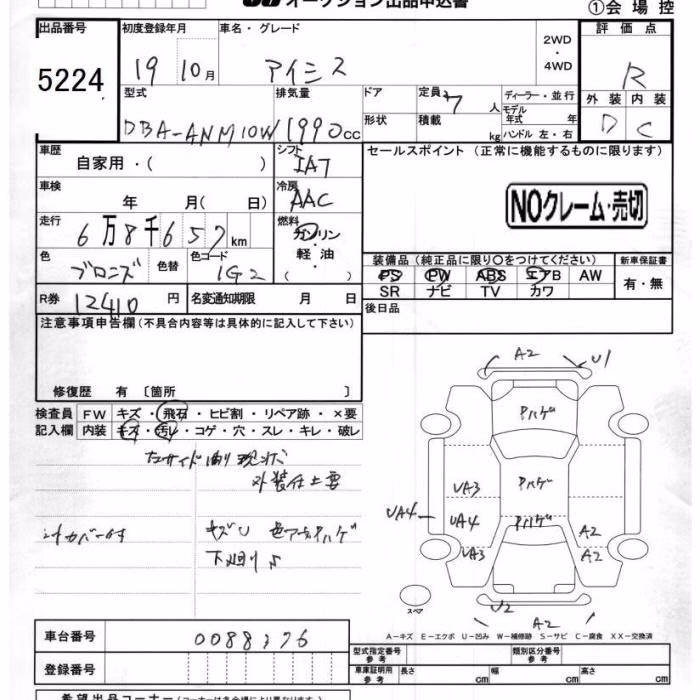 オークション出品申込書
①会場控
出品番号
5224
初度登録年月
19 10月
車名・グレード
アイシス
2WD
・
4WD
評価点
R
外装 内装
D C
型式
DBA-ANM10W
排気量
1990cc
ドア
形状
定員 7人
積載 kg
ディーラー・並行
モデル年式 年
ハンドル 左・右
車歴
自家用・( )
シフト
IA7
セールスポイント (正常に機能するものに限ります)
車検
年 月( 日)
冷房
AAC
NOクレーム・売切
走行
6万8千657km
燃料
ガソリン
軽油
( )
色
ブロンズ
色替
色コード
1G2
装備品(純正品に限り○をつけてください)
新車保証書
PS PW ABS エアB AW
SR ナビ TV カワ
有・無
R券 12410円
名変通知期限 月 日
後日品
注意事項申告欄(不具合内容等は具体的に記入して下さい)
修復歴 有 〔箇所 〕
検査員 FW キズ・飛石・ヒビ割・リペア跡・×要
記入欄 内装 キズ・汚レ・コゲ・穴・スレ・キレ・破レ
外装仕上要
カバー
キズU
下廻り
A2 U1
Pハゲ
Pハゲ
Pハゲ
UA3
UA4 UA4
UA3
A2
A2
スペア
U2 A2
A-キズ E-エクボ U-凹み W-補修跡 S-サビ C-腐食 XX-交換済
車台番号 0088376
登録番号
型式指定番号 参考
類別区分番号 参考
車庫証明用 参考 長さ cm 幅 cm 高さ cm
希望出品コーナー(コーナーは各会場により異なります)